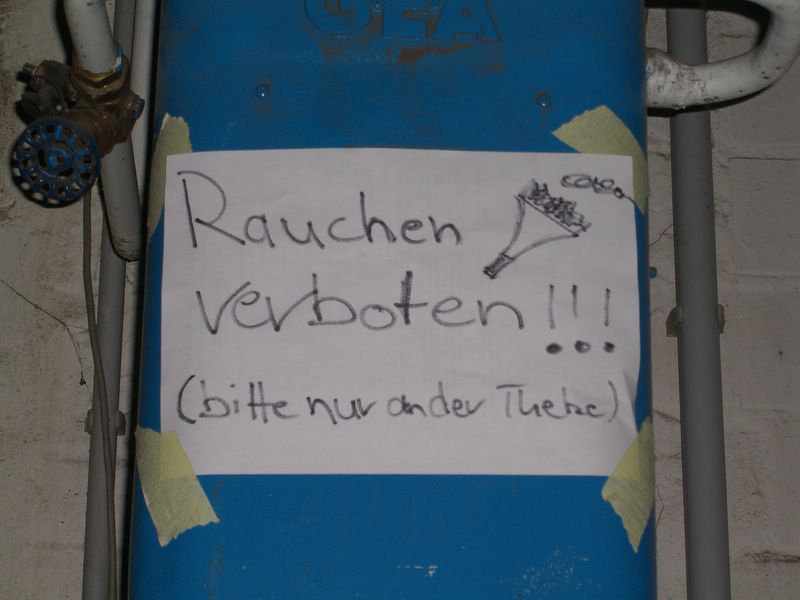 GEA
Rauchen
verboten!!!
(bitte nur an der Theke)